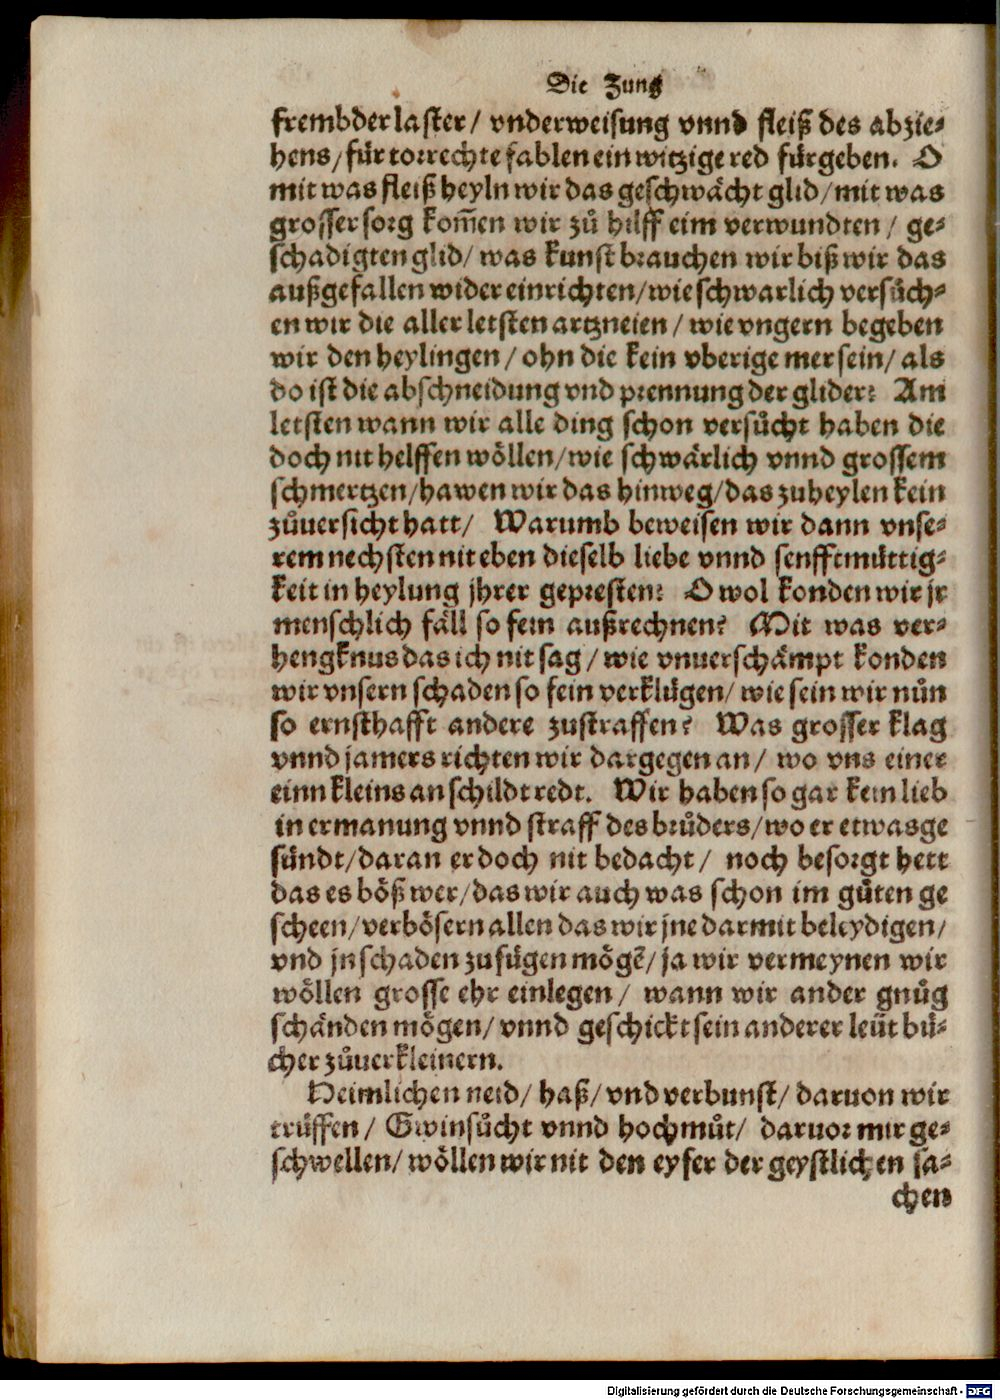 Die Zung
frembder laster / vnderweisung vnnd fleiß des abzie⸗
hens / für torrechte fablen ein witzige red fürgeben. O
mit was fleiß heyln wir das geschwächt glid / mit was
grosser sorg kom̃en wir zů hilff eim verwundten / ge⸗
schadigten glid / was kunst brauchen wir biß wir das
außgefallen wider einrichten / wie schwarlich versůch⸗
en wir die aller letsten artzneien / wie vngern begeben
wir den heylingen / ohn die kein vberige mer sein / als
do ist die abschneidung vnd prennung der glider? Am
letsten wann wir alle ding schon versůcht haben die
doch nit helffen wöllen / wie schwärlich vnnd grossem
schmertzen / hawen wir das hinweg / das zuheylen kein
zůuersicht hatt / Warumb beweisen wir dann vnse⸗
rem nechsten nit eben dieselb liebe vnnd senfftmüttig⸗
keit in heylung jhrer gepresten? O wol konden wir jr
menschlich fäll so fein außrechnen? Mit was ver⸗
hengknus das ich nit sag / wie vnuerschämpt konden
wir vnsern schaden so fein verklügen / wie sein wir nůn
so ernsthafft andere zustraffen? Was grosser klag
vnnd jamers richten wir dargegen an / wo vns einer
einn kleins an schildt redt. Wir haben so gar kein lieb
in ermanung vnnd straff des brůders / wo er etwas ge
sündt / daran er doch nit bedacht / noch besorgt hett
das es böß wer / das wir auch was schon im gůten ge
scheen / verbösern allen das wir jne darmit beleydigen /
vnd jn schaden zufügen mögẽ / ja wir vermeynen wir
wöllen grosse ehr einlegen / wann wir ander gnůg
schänden mögen / vnnd geschickt sein anderer leüt bü⸗
cher zůuerkleinern.
Heimlichen neid / haß / vnd verbunst / daruon wir
trüffen / Gwinsůcht vnnd hochmůt / daruor mir ge⸗
schwellen / wöllen wir nit den eyfer der geystlichen sa⸗
chen
Digitalisierung gefördert durch die Deutsche Forschungsgemeinschaft - DFG